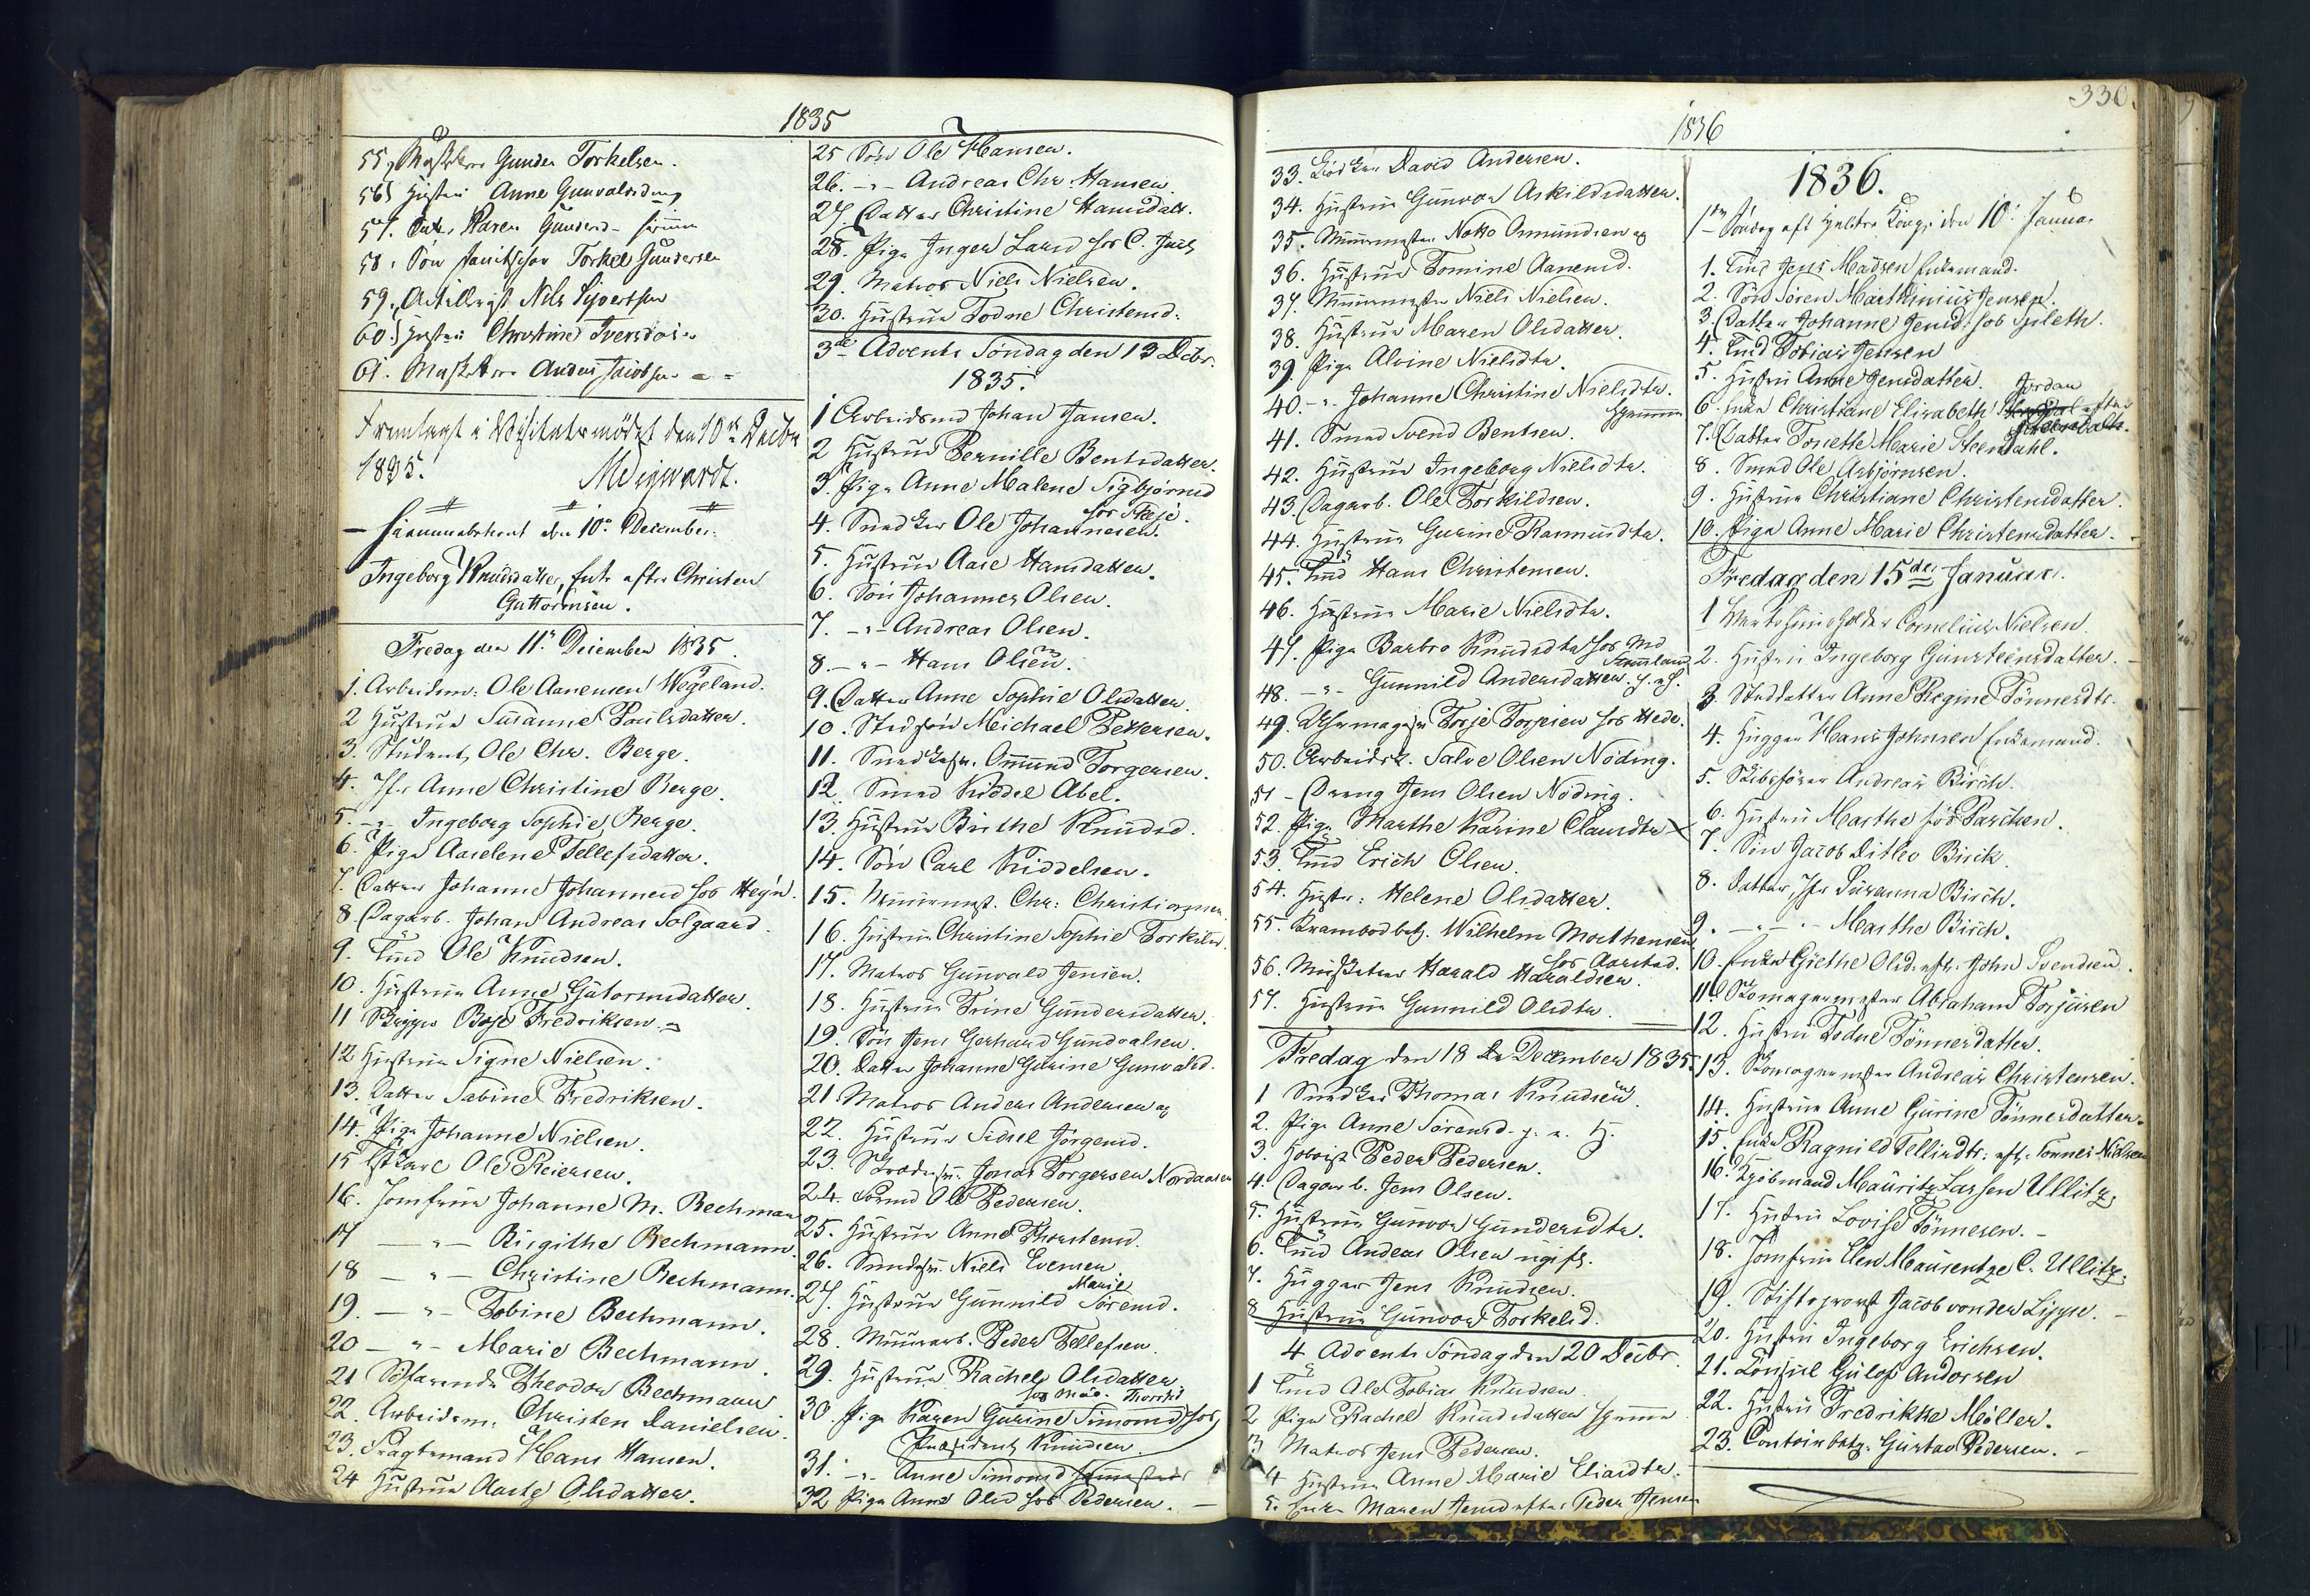 1835
55, Musketeer Gunder Torkelsen.
56 Hustru Anne Gunvaldsdatt
57. Datr. Karen Gundersd
58. Søn Janitschar Torkel Gundersen
59. Artillerist Nils Syvertsen
60. Hustru Christine Iversdatr
61. Musketeer Anders Jacobsen
Fremlagt i Visitatsmødet den 10de Decbr
1835.
- Hjemmeberettet den 10de December.
Ingeborg Knudsdatter, Enke efter Christen
Guttormsen.
Fredag den 11te December 1835.
1. Arbeidsm: Ole Aanensen Wegeland.
2 Hustrue Susanne Poulsdatter.
3. Student Ole Chr. Berge.
4. Jfr Anne Christine Berge.
5. -"- Ingeborg Sophie Berge.
6. Pige Aaselene Tellefsdatter.
7. Datter Johanne Johannesd hos Hegn.
8. Dagarb. Johan Andreas Solgaard.
9. Tmd Ole Knudsen.
10. Hustrue Anne Gutormsdatter.
11 Skipper Boje Fredriksen
12 Hustrue Signe Nielsen.
13. Datter Sabine Fredriksen.
14. Pige Johanne Nielsen.
15 Ole Reiersen.
16. Jomfrue Johanne M. Bechmann
17 -"- Birgithe Bechmann.
18 -"- Christine Bechmann.
19. -"- Tobine Bechmann.
20 -"- Marie Bechmann
21 Søfarende Theodor Bechmann
22. Arbeidsm. Christen Danielsen.
23. Fragtemand Hans Hansen.
24 Hustrue Aaste Olsdatter.
25 Søn Ole Hansen.
26. -"- Andreas Chr. Hansen
27. Datter Christine Hansdatt.
28. Pige Inger Larsd hos C.
29. Matros Niels Nielsen.
30. Hustrue Todne Christensd.
3de Advents Søndag den 13 Decbr.
1835.
1 Arbeidsmd Johan Jansen.
2 Hustrue Pernille Bentsdatter.
3. Pige Anne Malene Sigbjørnsd
4. Snedker Ole Johannesen.
5. Hustrue Aase Hansdatter.
6. Søn Johannes Olsen.
7. -"- Andreas Olsen.
8. -"- Hans Olsen.
9. Datter Anne Sophie Olsdatter.
10. Stedsøn Michael Pettersen.
11. Snedkersv. Ommund Torgersen.
12. Smed Kiddel Abel.
13. Hustrue Birthe Knudsd.
14. Søn Carl Kiddelsen.
15. Muurmest. Chr: Christiansen
16. Hustrue Christine Sophie Torkilds.
17. Matros Gunvald Jensen.
18. Hustrue Trine Gundersdatter.
19. Søn Jens Gerhard Gundvalsen.
20. Datter Johanne Gurine Gunvalsd.
21 Matros Anders Andersen og
22. Hustrue Sidsel Jørgensd.
23. Skrædersv. Jonas Torgersen Nordaasen
24. Ole Pedersen.
25. Hustrue Anne Thorstensd.
26. Smedsv. Niels Evensen
27. Hustrue Gunnild Marie Sørensd.
28. Muurarb. Peder Tellefsen.
29. Hustrue Rachel Olsdatter.
30. Pige Karen Gurine Simonsd hos
Præsident Knudsen.
31. -"- Anne Simonsd
32 Pige Anne Olsd hos Pedersen.
330.
1836
33. Bødker David Andersen.
34. Hustrue Gunvor Askildsdatter.
35. Muurmester Notto Osmundsen og
36. Hustrue Tomine Aanensd.
37. Muurmester Niels Nielsen.
38. Hustrue Maren Olsdatter.
39. Pige Alvine Nielsdtr.
40. -"- Johanne Christine Nielsdtr.
hjemme
41. Smed Svend Bentsen.
42. Hustrue Ingeborg Nielsdtr.
43. Dagarb. Ole Torkildsen.
44. Hustrue Gurine Rasmusdtr.
45. Tmd Hans Christensen.
46. Hustrue Marie Nielsdtr.
47. Pige Barbro Knudsdtr hos Md
48. -"- Gunnild Andersdatter.
49. Uhrmager Torje Torjesen hos Hede.
50. Arbeidsk. Salve Olsen Nøding.
51 - Dreng Jens Olsen Nøding.
52. Pige Marthe Karine Clausdtr
53. Tmd Erich Olsen.
54. Hustr: Helene Olsdatter.
55. Krambodbetj. Wilhelm Mathensen
hos Aarstad.
56. Musketeer Harald Haraldsen.
57. Hustrue Gunnild Olsdtr.
Fredag den 18de December 1835.
1 Snedker Thomas Knudsen.
2. Pige Anne Sørensd.
3. Hoboist Peder Pedersen.
4. Dagarb. Jens Olsen.
5. Hustrue Gunvor Gundersdtr.
6. Tmd Anders Olsen ugift.
7. Hugger Jens Knudsen.
8 Hustrue Gunvor Torkelsd.
4 Advents Søndag den 20 Decbr.
1 Tmd Ole Tobias Knudsen.
2 Pige Rachel Knudsdatter hjemme
3 Matros Jens Pedersen.
4 Hustrue Anne Marie Eliasdtr.
5. Enke Maren Jensd efter Peder Jensen
1836.
1ste Søndag eft Hellitre Konge den 10de Januar
1. Tmd Jens Madsen Enkemand.
2. Søn Søren Marthinius Jensen.
3. Datter Johanne Jensd hos Spileth.
4. Tmd Tobias Jensen
5. Hustru Anne Jensdatter.
6. Enke Christiane Elisabeth Jordan efter
7. Datter Tonette Marie Steendahl.
8. Smed Ole Asbjørnsen.
9. Hustrue Christiane Christensdatter.
10. Pige Anne Marie Christensdatter.
Fredag den 15de Januar.
1 Vertshuusholder Cornelius Nielsen
2. Hustru Ingeborg Gunsteensdatter.
3. Steddatter Anne Regine Tønnesdtr.
4. Hugger Hans Johnsen Enkemand.
5. Skibsfører Andreas Birch.
6. Hustru Marthe fød Paschen.
7. Søn Jacob Ditlev Birck.
8. Datter, Jfr Susanna Birch.
9. -"- Marthe Birch.
10. Enke Grethe Olsd. eft. John Svendsen.
11. Skomagermester Abraham Torjusen
12. Hustru Todne Tønnesdatter.
13. Skomagermester Andreas Christensen.
14. Hustrue Anne Gurine Tønnesdatter.
15. Enke Ragnild Tellisdtr. eft. Tønnes Nielsen
16. Kjøbmand Mauritz Larsen Ullitz
17. Hustru Lovise Tønnesen.
18. Jomfrue Elen Mausentze C. Ullitz.
19. Stiftsprovst Jacob von der Lippe.
20. Hustru Ingeborg Erichsen.
21. Consul Gulof Andorsen
22. Hustru Fredrikke Møller.
23. Contoirbetj. Gustav Pedersen.